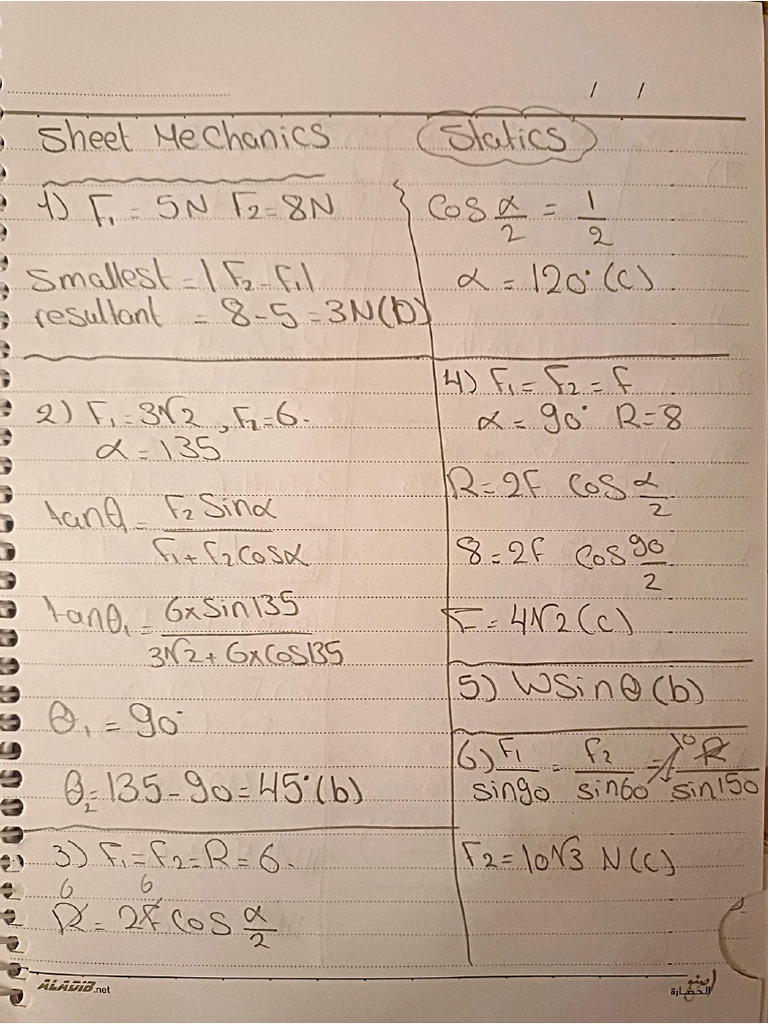 / /
Sheet Mechanics
Statics
1) F₁ = 5N F₂ = 8N
Smallest = |F₂ - F₁|
resultant = 8 - 5 = 3N (b)
2) F₁ = 3√2 , F₂ = 6.
α = 135
tanθ = F₂ Sinα / F₁ + F₂ Cosα
tanθ₁ = 6 x Sin 135 / 3√2 + 6 x Cos 135
θ₁ = 90°
θ₂ = 135 - 90 = 45° (b)
3) F₁ = F₂ = R = 6.
6 6
R = 2F Cos α/2
Cos α/2 = 1/2
α = 120° (c)
4) F₁ = F₂ = F
α = 90° R = 8
R = 2F Cos α/2
8 = 2F Cos 90/2
F = 4√2 (c)
5) W Sinθ (b)
6) F₁/sin90 = F₂/sin60 = 10 R/sin150
F₂ = 10√3 N (c)
ALADIB.net
الحضارة